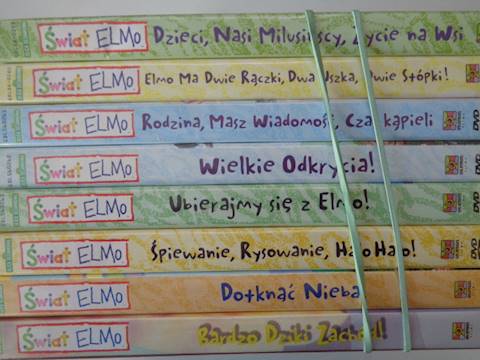 Świat ELMO Dzieci, Nasi Milusińscy, Życie na Wsi
Świat ELMO Elmo Ma Dwie Rączki, Dwa Uszka, Dwie Stópki!
Świat ELMO Rodzina, Masz Wiadomość, Czas kąpieli DVD
Świat ELMO Wielkie Odkrycia!
Świat ELMO Ubierajmy się z Elmo! DVD
Świat ELMO Śpiewanie, Rysowanie, Halo Halo! DVD
Świat ELMO Dotknąć Nieba
Świat ELMO Bardzo Dziki Zachód!